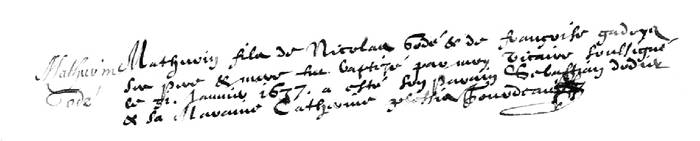 Mathurin
Godé
Mathurin fils de Nicolas Godé & de françoise gadoys
ses pere & mere fut baptizé par moy vicaire soussigné
le 21. janvier 1637. a esté son parain Sebastian
& sa Maraine Catherine Gourdeau